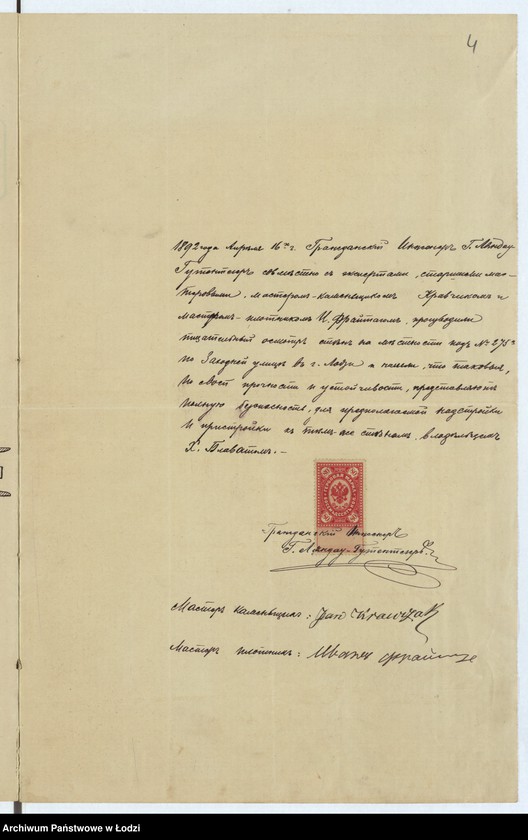 4
1892 года Апрѣля 16го г. Гражданскій Инженеръ Г. Ляндау-
Гутентегеръ совмѣстно съ экспертами, старшими мас-
теровыми, мастеромъ-каменьщикомъ Кравчикомъ и
мастеромъ-плотникомъ И. Фрайтагомъ, производили
тщательный осмотръ стѣнъ на мѣстности подъ № 275
по Заходной улицѣ въ г. Лодзи и нашли, что таковыя,
по своей прочности и устойчивости, представляютъ
полную безопасность, для предполагаемой надстройки
и пристройки къ тѣмъ-же стѣнамъ, владѣльцемъ
Х. Блаватомъ. —
Гражданскій Инженеръ
Г. Ляндау-Гутентегеръ
Мастеръ каменьщикъ: Jan Krawczyk
Мастеръ плотникъ: Иванъ
Archiwum Państwowe w Łodzi